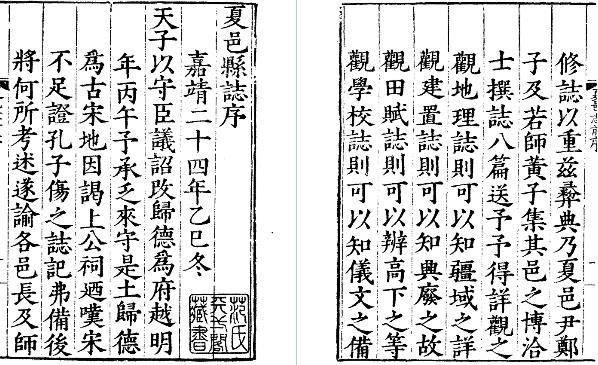 夏邑縣誌序
嘉靖二十四年乙巳冬
范氏
天一閣
藏書
天子以守臣議詔改歸德爲府越明
年丙午予承乏來守是土歸德
爲古宋地因謁上公祠廼嘆宋
不足證孔子傷之誌記弗備後
將何所考述遂諭各邑長及師
修誌以重茲彝典乃夏邑尹鄭
子及若師黃子集其邑之博洽
士撰誌八篇送予予得詳觀之
觀地理誌則可以知疆域之詳
觀建置誌則可以知興廢之故
觀田賦誌則可以辨高下之等
觀學校誌則可以知儀文之備